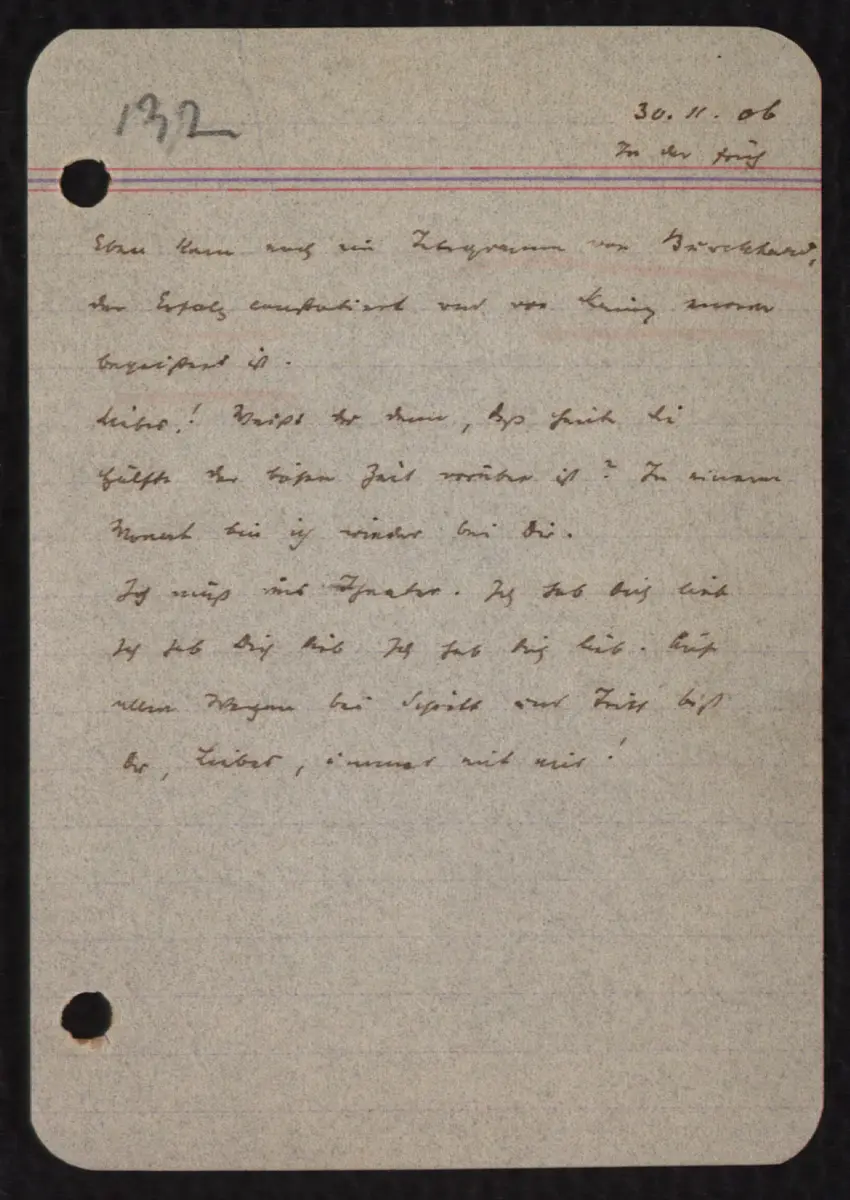 132
30. 11. 06
In der früh
Eben kam noch ein Telegramm von Burckhard,
der Erfolg constatiert und von König enorm
begeistert ist.
Lieber! Weißt du denn, daß heute die
Hälfte der bösen Zeit vorüber ist? In einem
Monat bin ich wieder bei Dir.
Ich muß ins Theater. Ich hab Dich lieb
Ich hab Dich lieb Ich hab Dich lieb. Auf
allen Wegen bei Schritt und Tritt bist
Du, Lieber, immer mit mir!